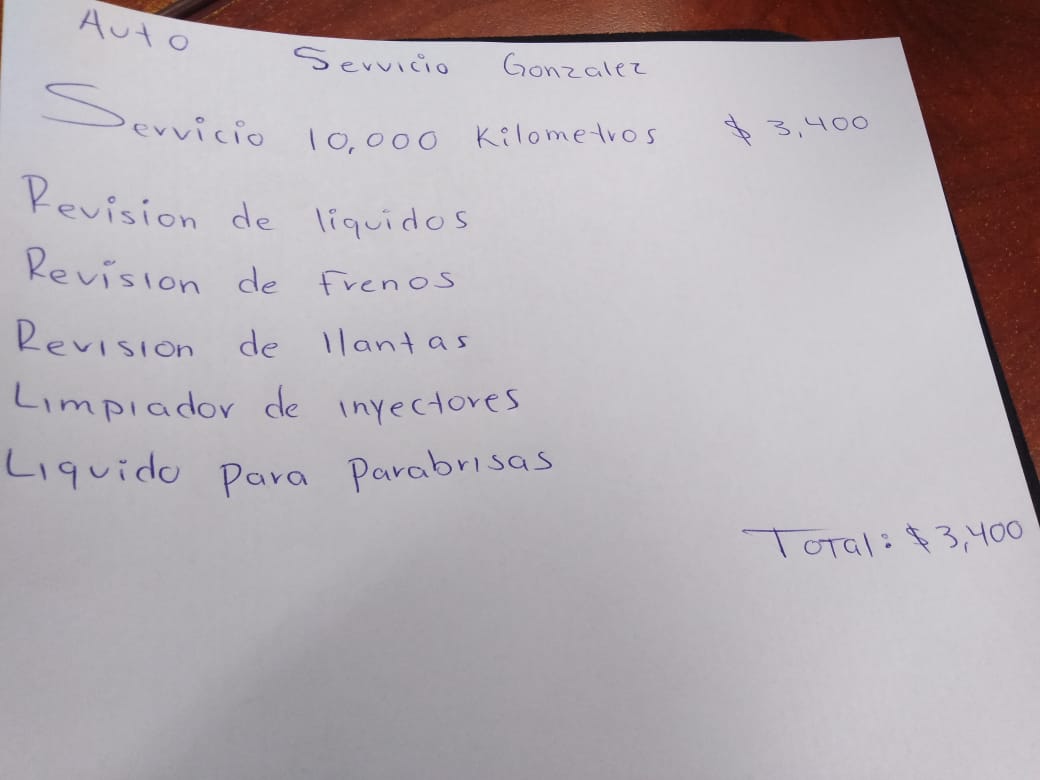 Auto Servicio Gonzalez
Servicio 10,000 Kilometros $ 3,400
Revision de liquidos
Revision de Frenos
Revision de llantas
Limpiador de inyectores
Liquido para parabrisas
Total: $ 3,400